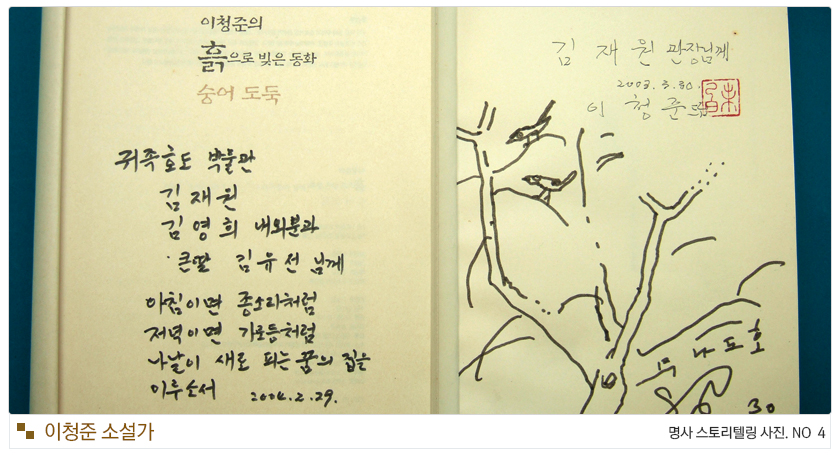 이청준의
흙으로 빚은 동화
숭어 도둑
귀족호도 박물관
김 재 원
김 영 희 내외분과
큰딸 김유선 님께
아침이면 종소리처럼
저녁이면 가로등처럼
나날이 새로 피는 꿈의 집을
이루소서 2004. 2. 29.
김 재 원 관장님께
이 청 준
30
이청준 소설가
명사 스토리텔링 사진. NO 4